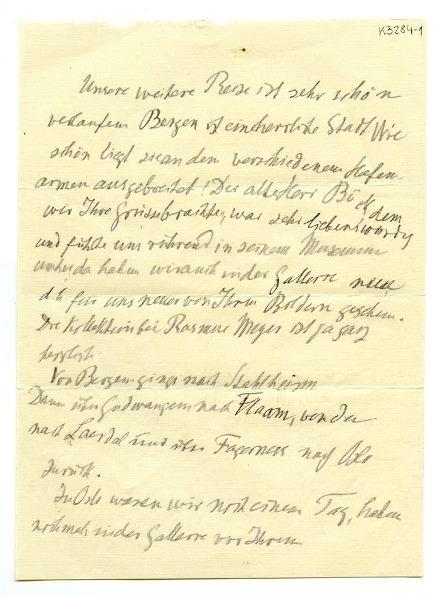 K3284-1
Unsere weitere Reise ist sehr schön
verlaufen Bergen ist eine herrliche Stadt Wie
schön liegt sie an den verschiedenen Hafen-
armen ausgebreitet! Der alte Herr Böck dem
wir Ihre Grüsse brachten, war sehr liebenswürdig
und führte uns rührend in seinem Museum
umher da haben wir auch in der Gallerie neue
d.h. für uns neue von Ihren Bildern gesehen.
Die Kollektion bei Rasmus Meyer ist ja ganz
herrlich.
Von Bergen gings nach Stahlheim
Dann über Gudwangen nach Flaam, von da
nach Laerdal und über Fagerness nach Oslo
zurück.
In Oslo waren wir noch einen Tag, haben
nochmals in der Gallerie vor Ihrem